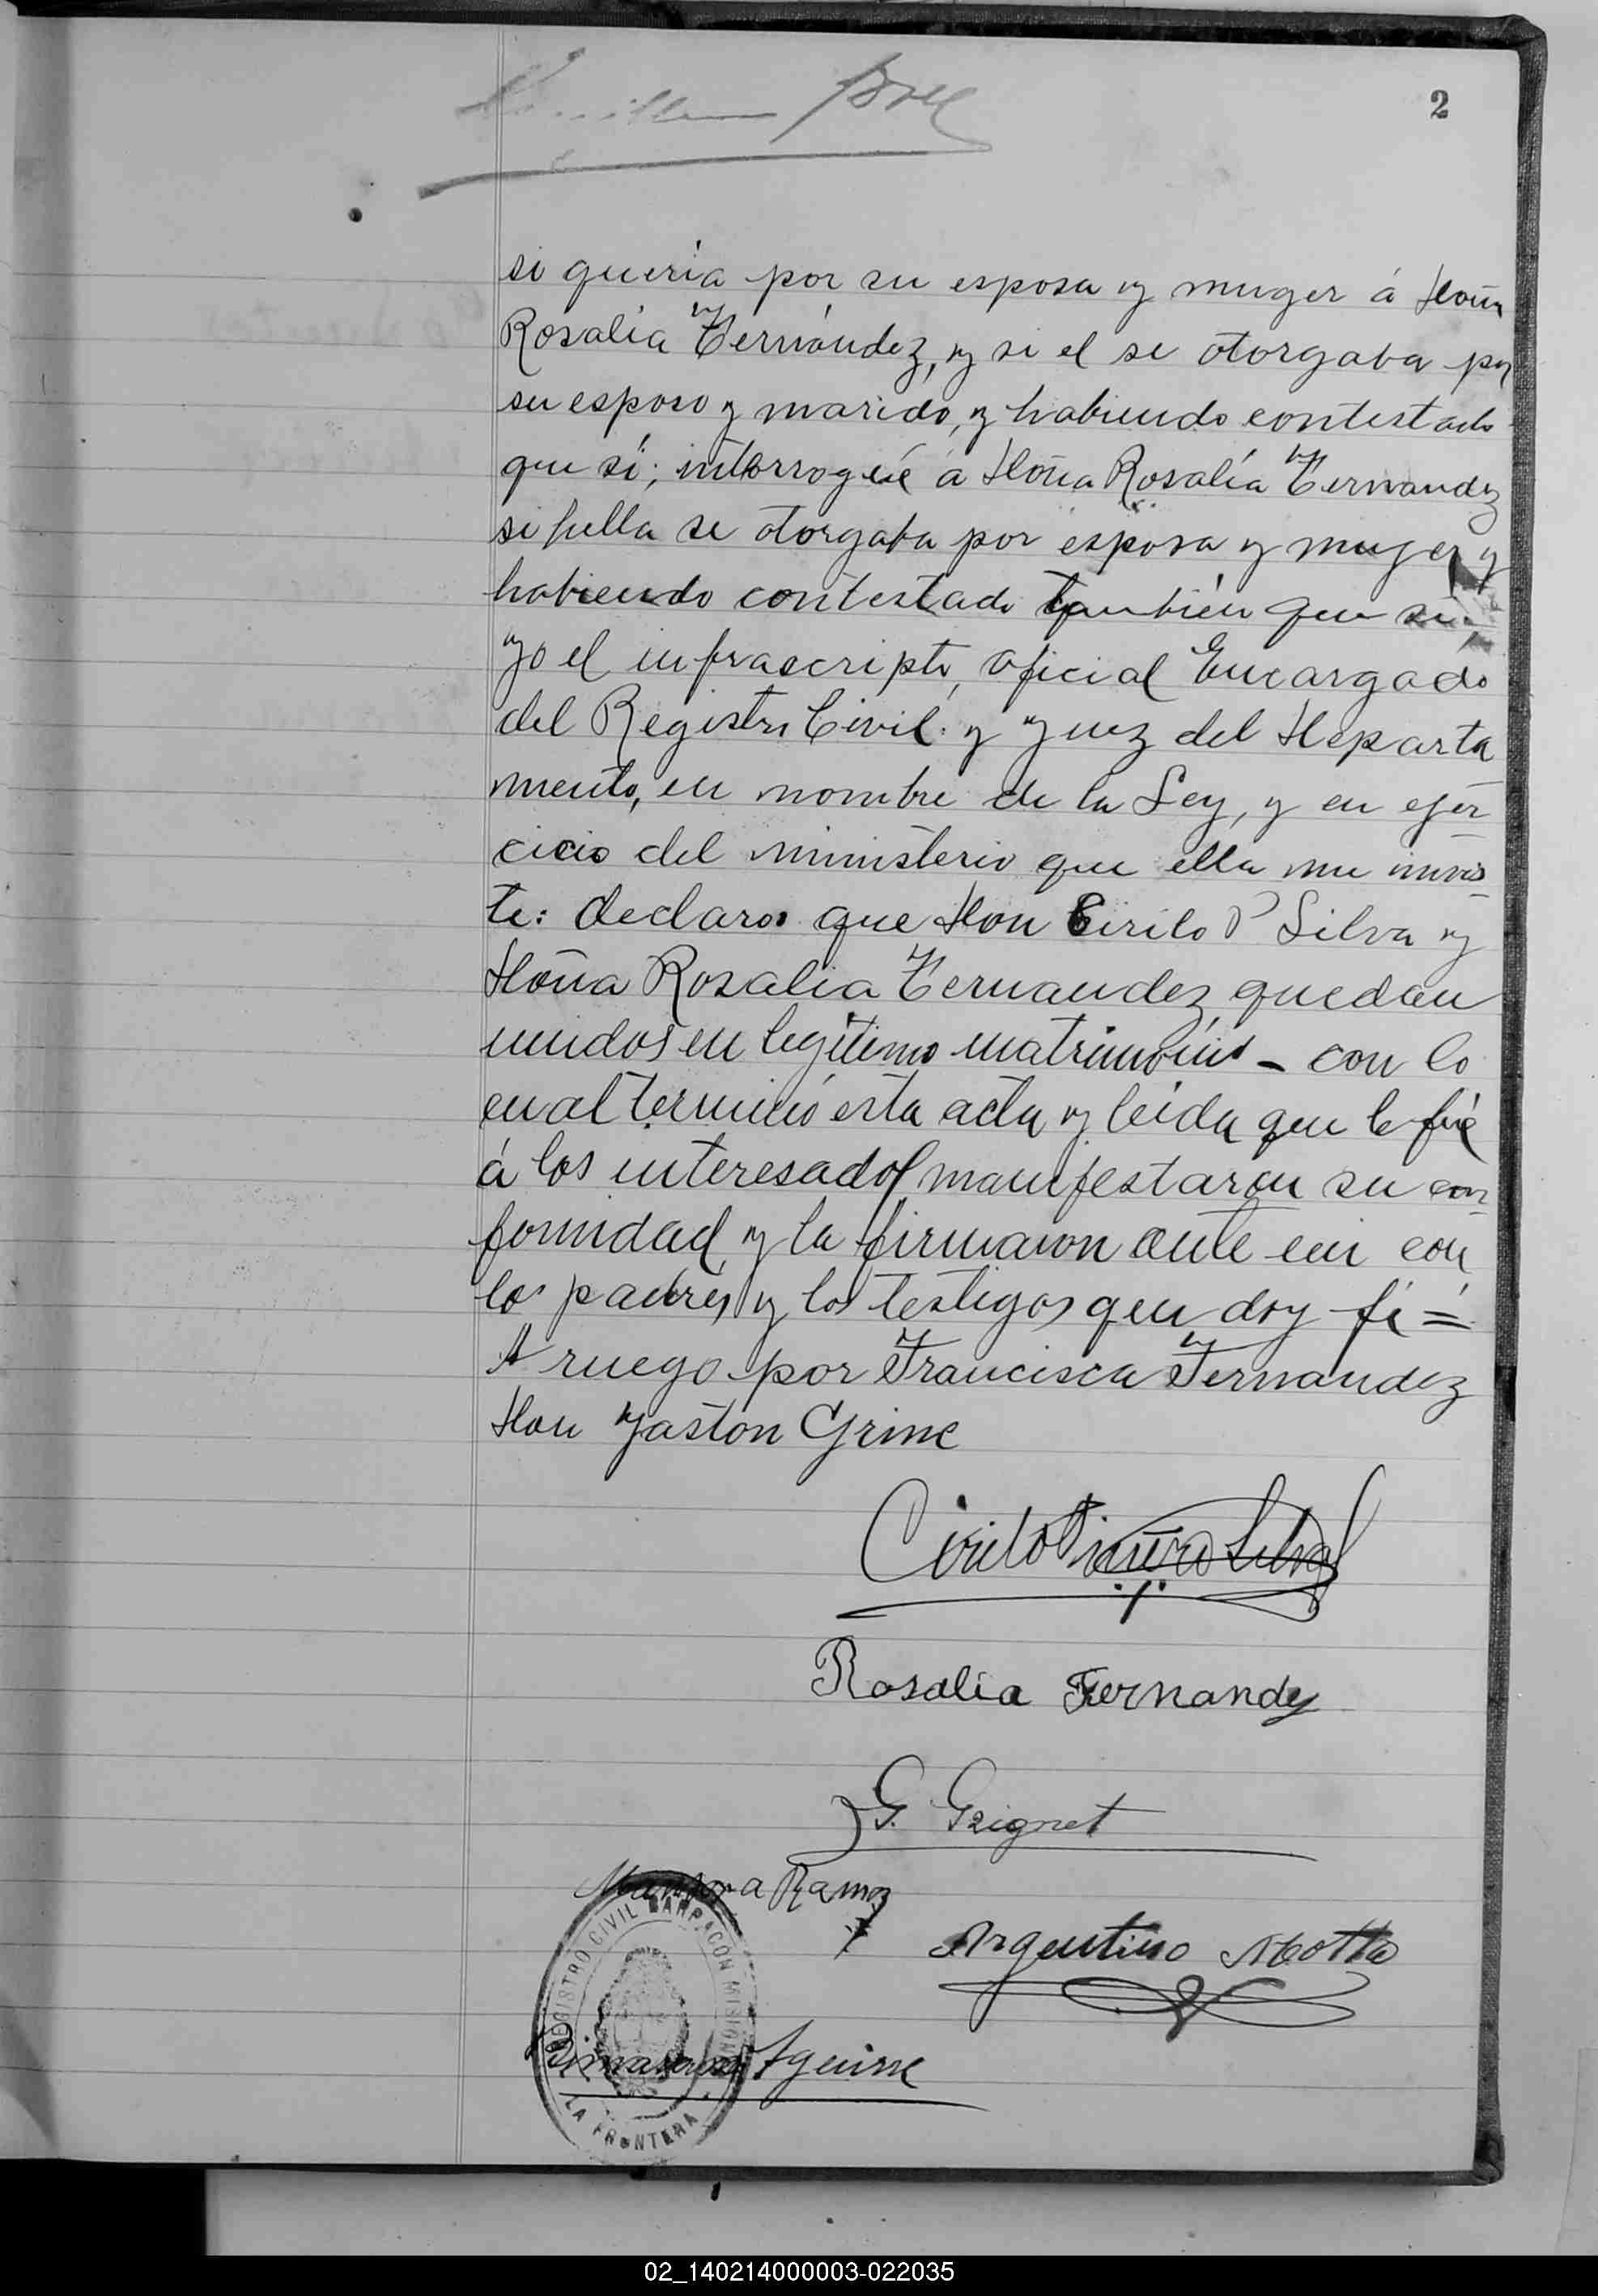 2
si queria por su esposa y muger á Doña
Rosalia Fernández, y si el se otorgaba por
su esposo y marido, y habiendo contestado
que sí; interrogué á Doña Rosalía Fernandez
si hella se otorgaba por esposa y muger y
habiendo contestado también que si;
yo el infrascripto, Oficial Encargado
del Registro Civil y Juez del Departa
mento, en nombre de la Ley, y en ejer
cicio del ministerio que ella me invis
te: declaro que Don Cirilo P Silva y
Doña Rosalia Fernandez quedan
unidos en legitimo matrimonio - con lo
cual terminó esta acta y leida que le fué
á los interesados manifestaron su con
formidad y la firmaron ante mi con
los padres y los testigos que doy fé =
A ruego por Francisca Fernandez
Don Gaston Grine
Cirilo Piñero Silva
Rosalia Fernandez
G. Grignet
Ramos
Argentino Motta
Aguirre
REGISTRO CIVIL BARRACÓN MISIONES
LA FRONTERA
02_140214000003-022035